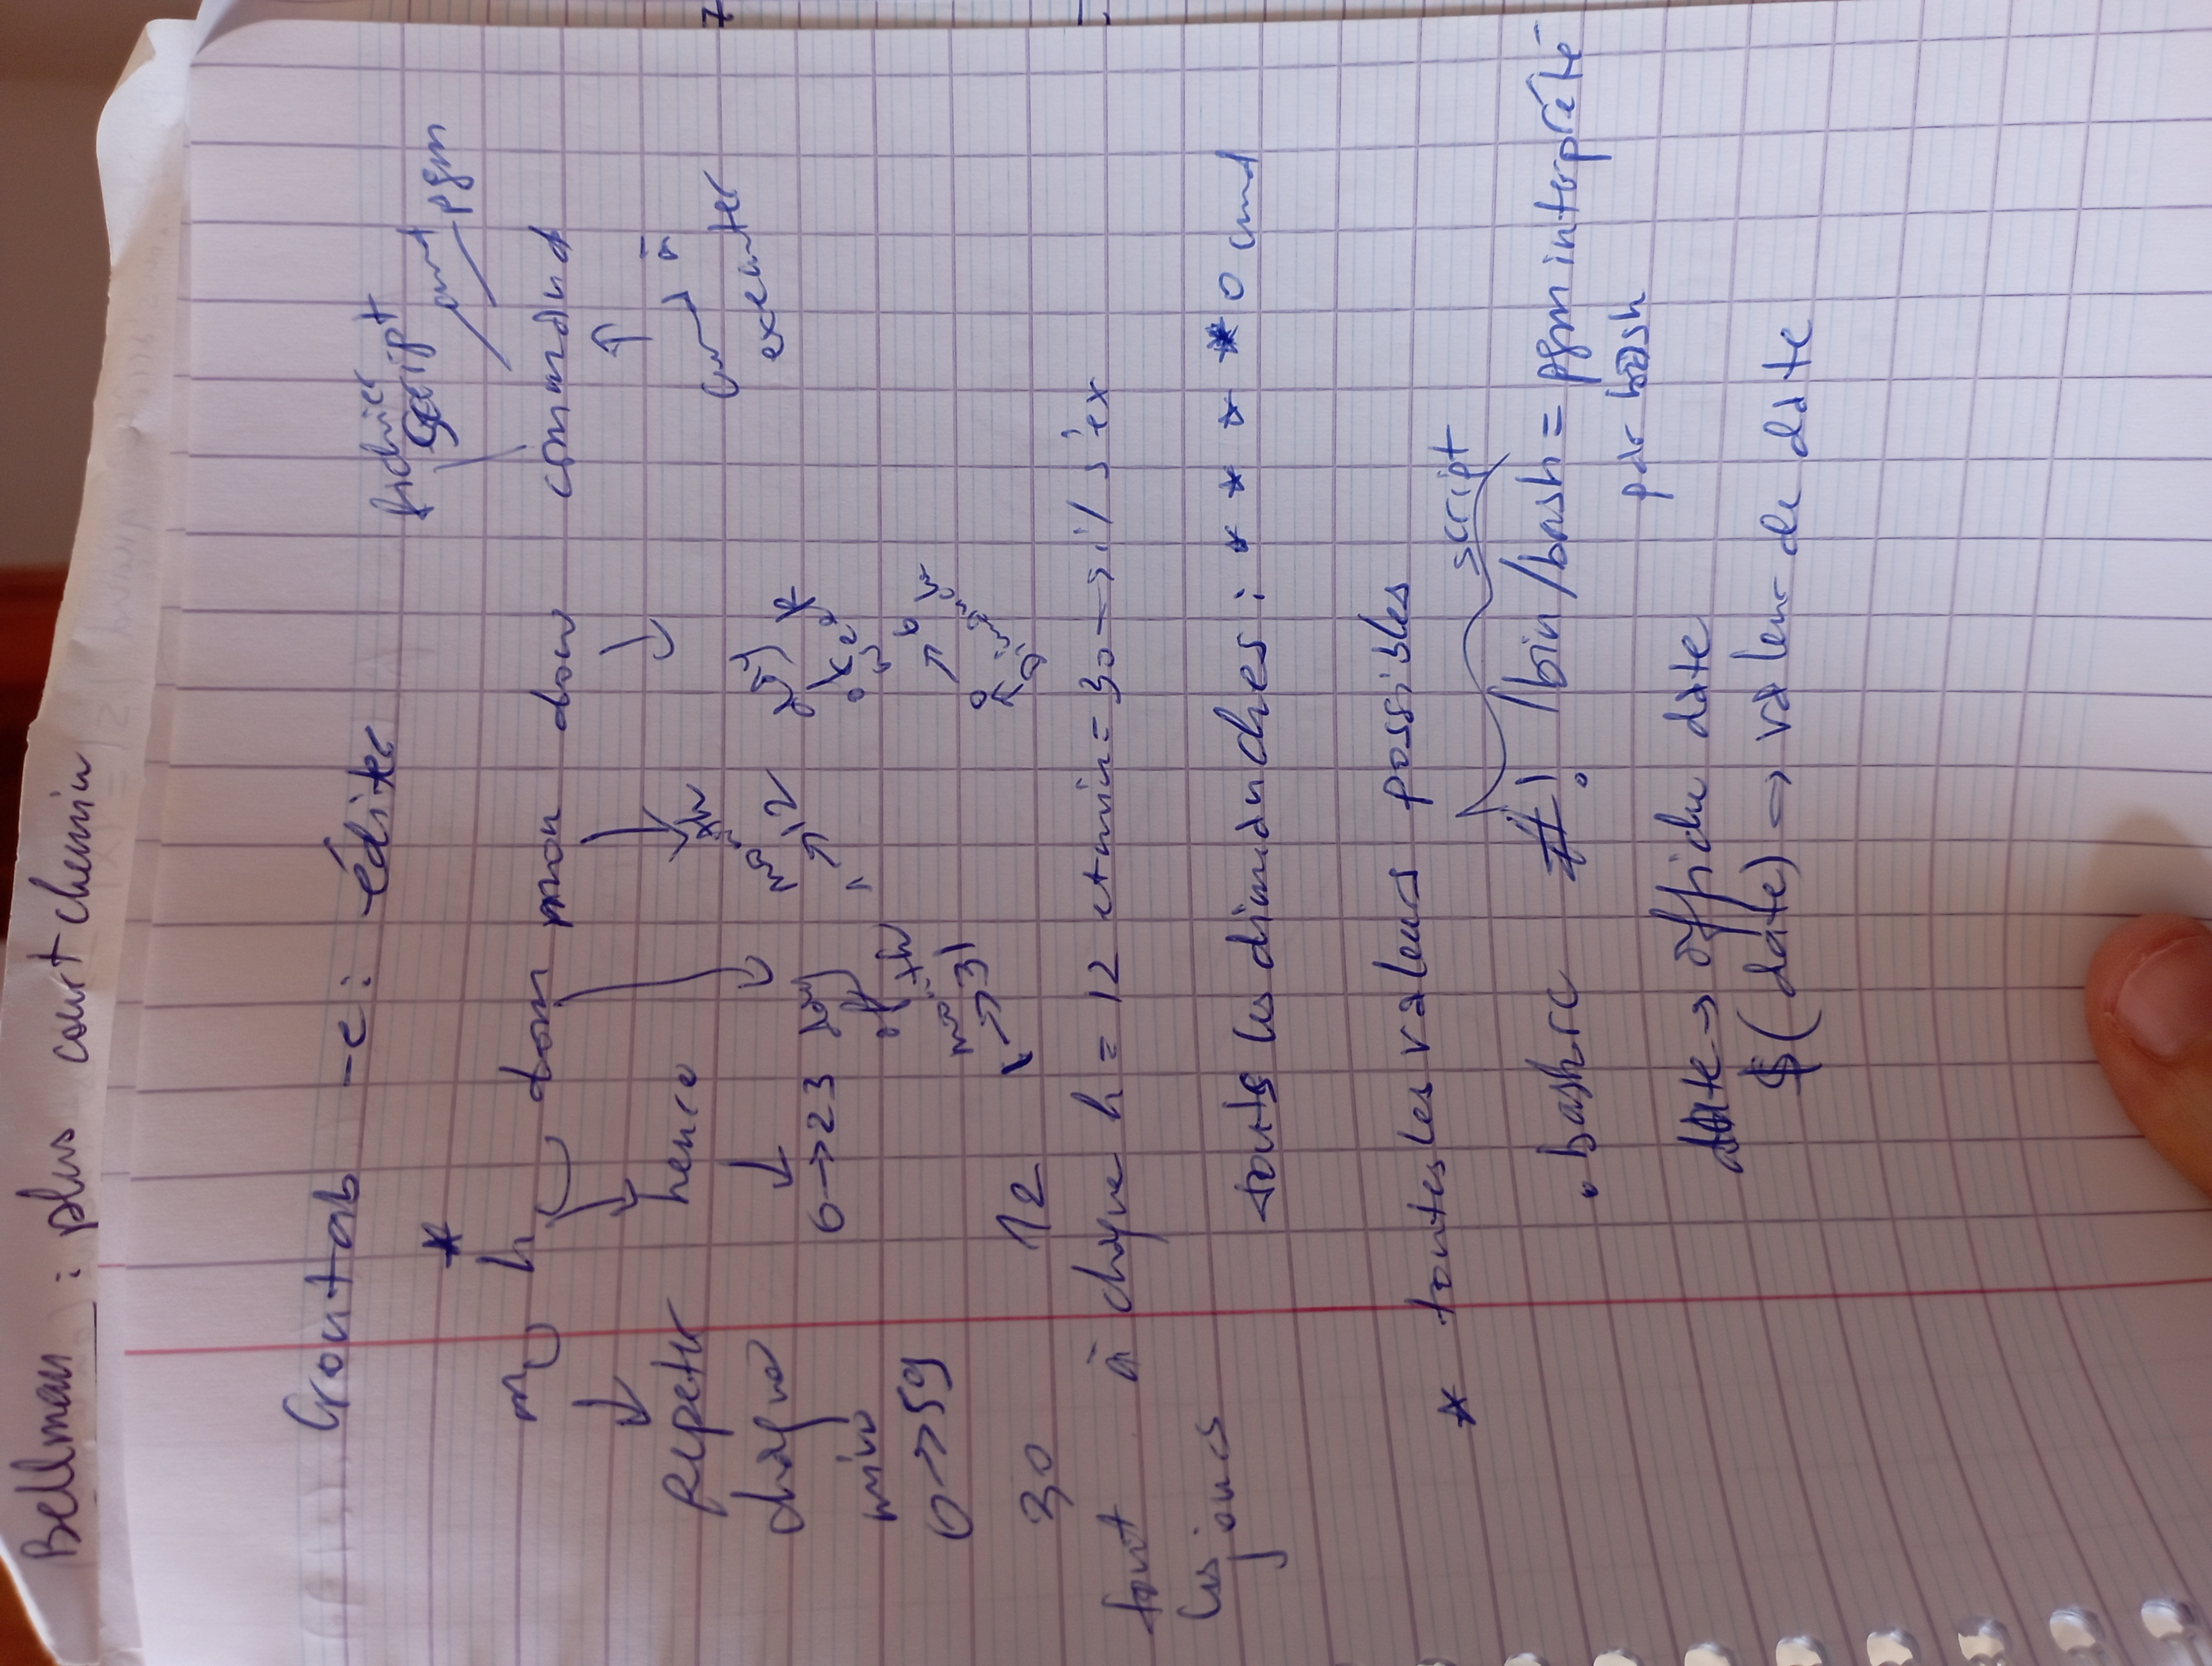 Bellman : plus court chemin
Crontab -e : éditer
fichier
script
cmd
pgm
*
m h dom mon dow command
repeter
chaque
min
0 → 59
heure
0 → 23
day
of
month
1 → 31
month
1 → 12
day
of
week
0 → 6
Dimanche
cmd à
executer
30 12
tout à chaque h = 12 et min = 30 → il s'ex
les jours
touts les dimanches : * * * * 0 cmd
* toutes les valeurs possibles
script
.bashrc #! /bin/bash = pgm interprété
par bash
date → affiche date
$(date) → valeur de date